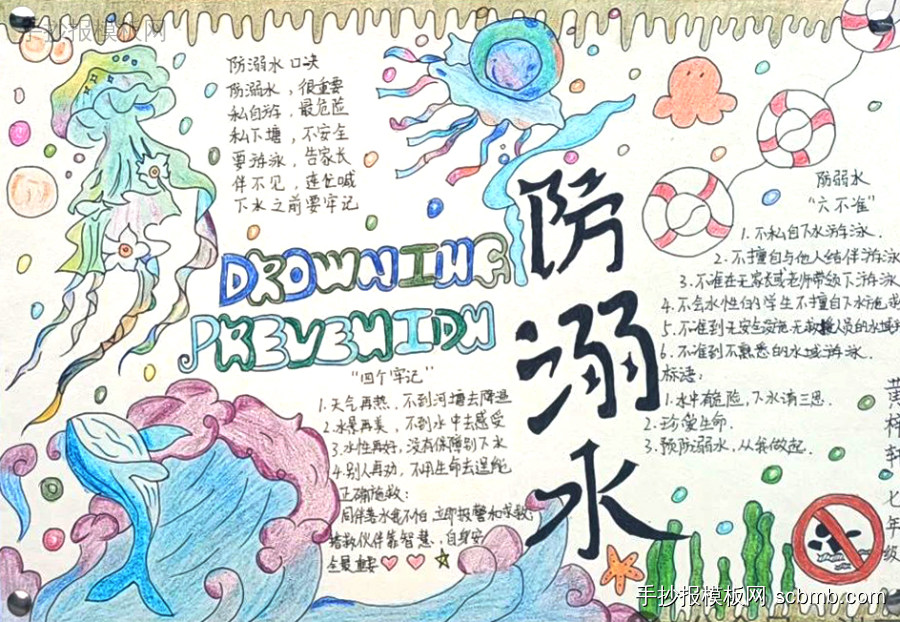 手抄报模板网
防溺水口决
防溺水，很重要
私自游，最危险
私下塘，不安全
要游泳，告家长
伴不见，连忙喊
下水之前要牢记
DROWNING
PREVENIDN
防溺水
防弱水
“六不准”
1.不私自下水游泳.
2.不擅自与他人结伴游泳
3.不准在无家长或老师带领下游泳
4.不会水性的学生不擅自下水施救
5.不准到无安全设施无救援人员的水域
6.不准到不熟悉的水域游泳.
标语：
1.水中有危险，下水请三思.
2.珍爱生命.
3.预防溺水，从我做起.
“四个牢记”
1.天气再熱，不到河塘去降温
2.水景再美，不到水中去感受
3.水性再好，没有保障别下水
4.别人再劝，不用生命去逞能
正确施救：
同伴落水我不怕，立即报警和求救；
援救伙伴靠智慧，自身安
全最重要
七年级
手抄报模板网 scbmb.com